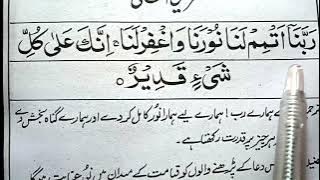 رَبَّنَآ اَتْمِمْ لَنَا نُوْرَنَا وَاغْفِرْلَنَا ۚ اِنَّكَ عَلٰى كُلِّ
شَىْءٍ قَدِيْرٌ ۝
ہمارے رب! ہمارے لیے ہمارا نور کامل کر دے اور ہمارے گناہ بخش دے
ہر چیز پر قدرت رکھتا ہے۔
دعا کے پڑھنے والوں کو قیامت کے میدان میں